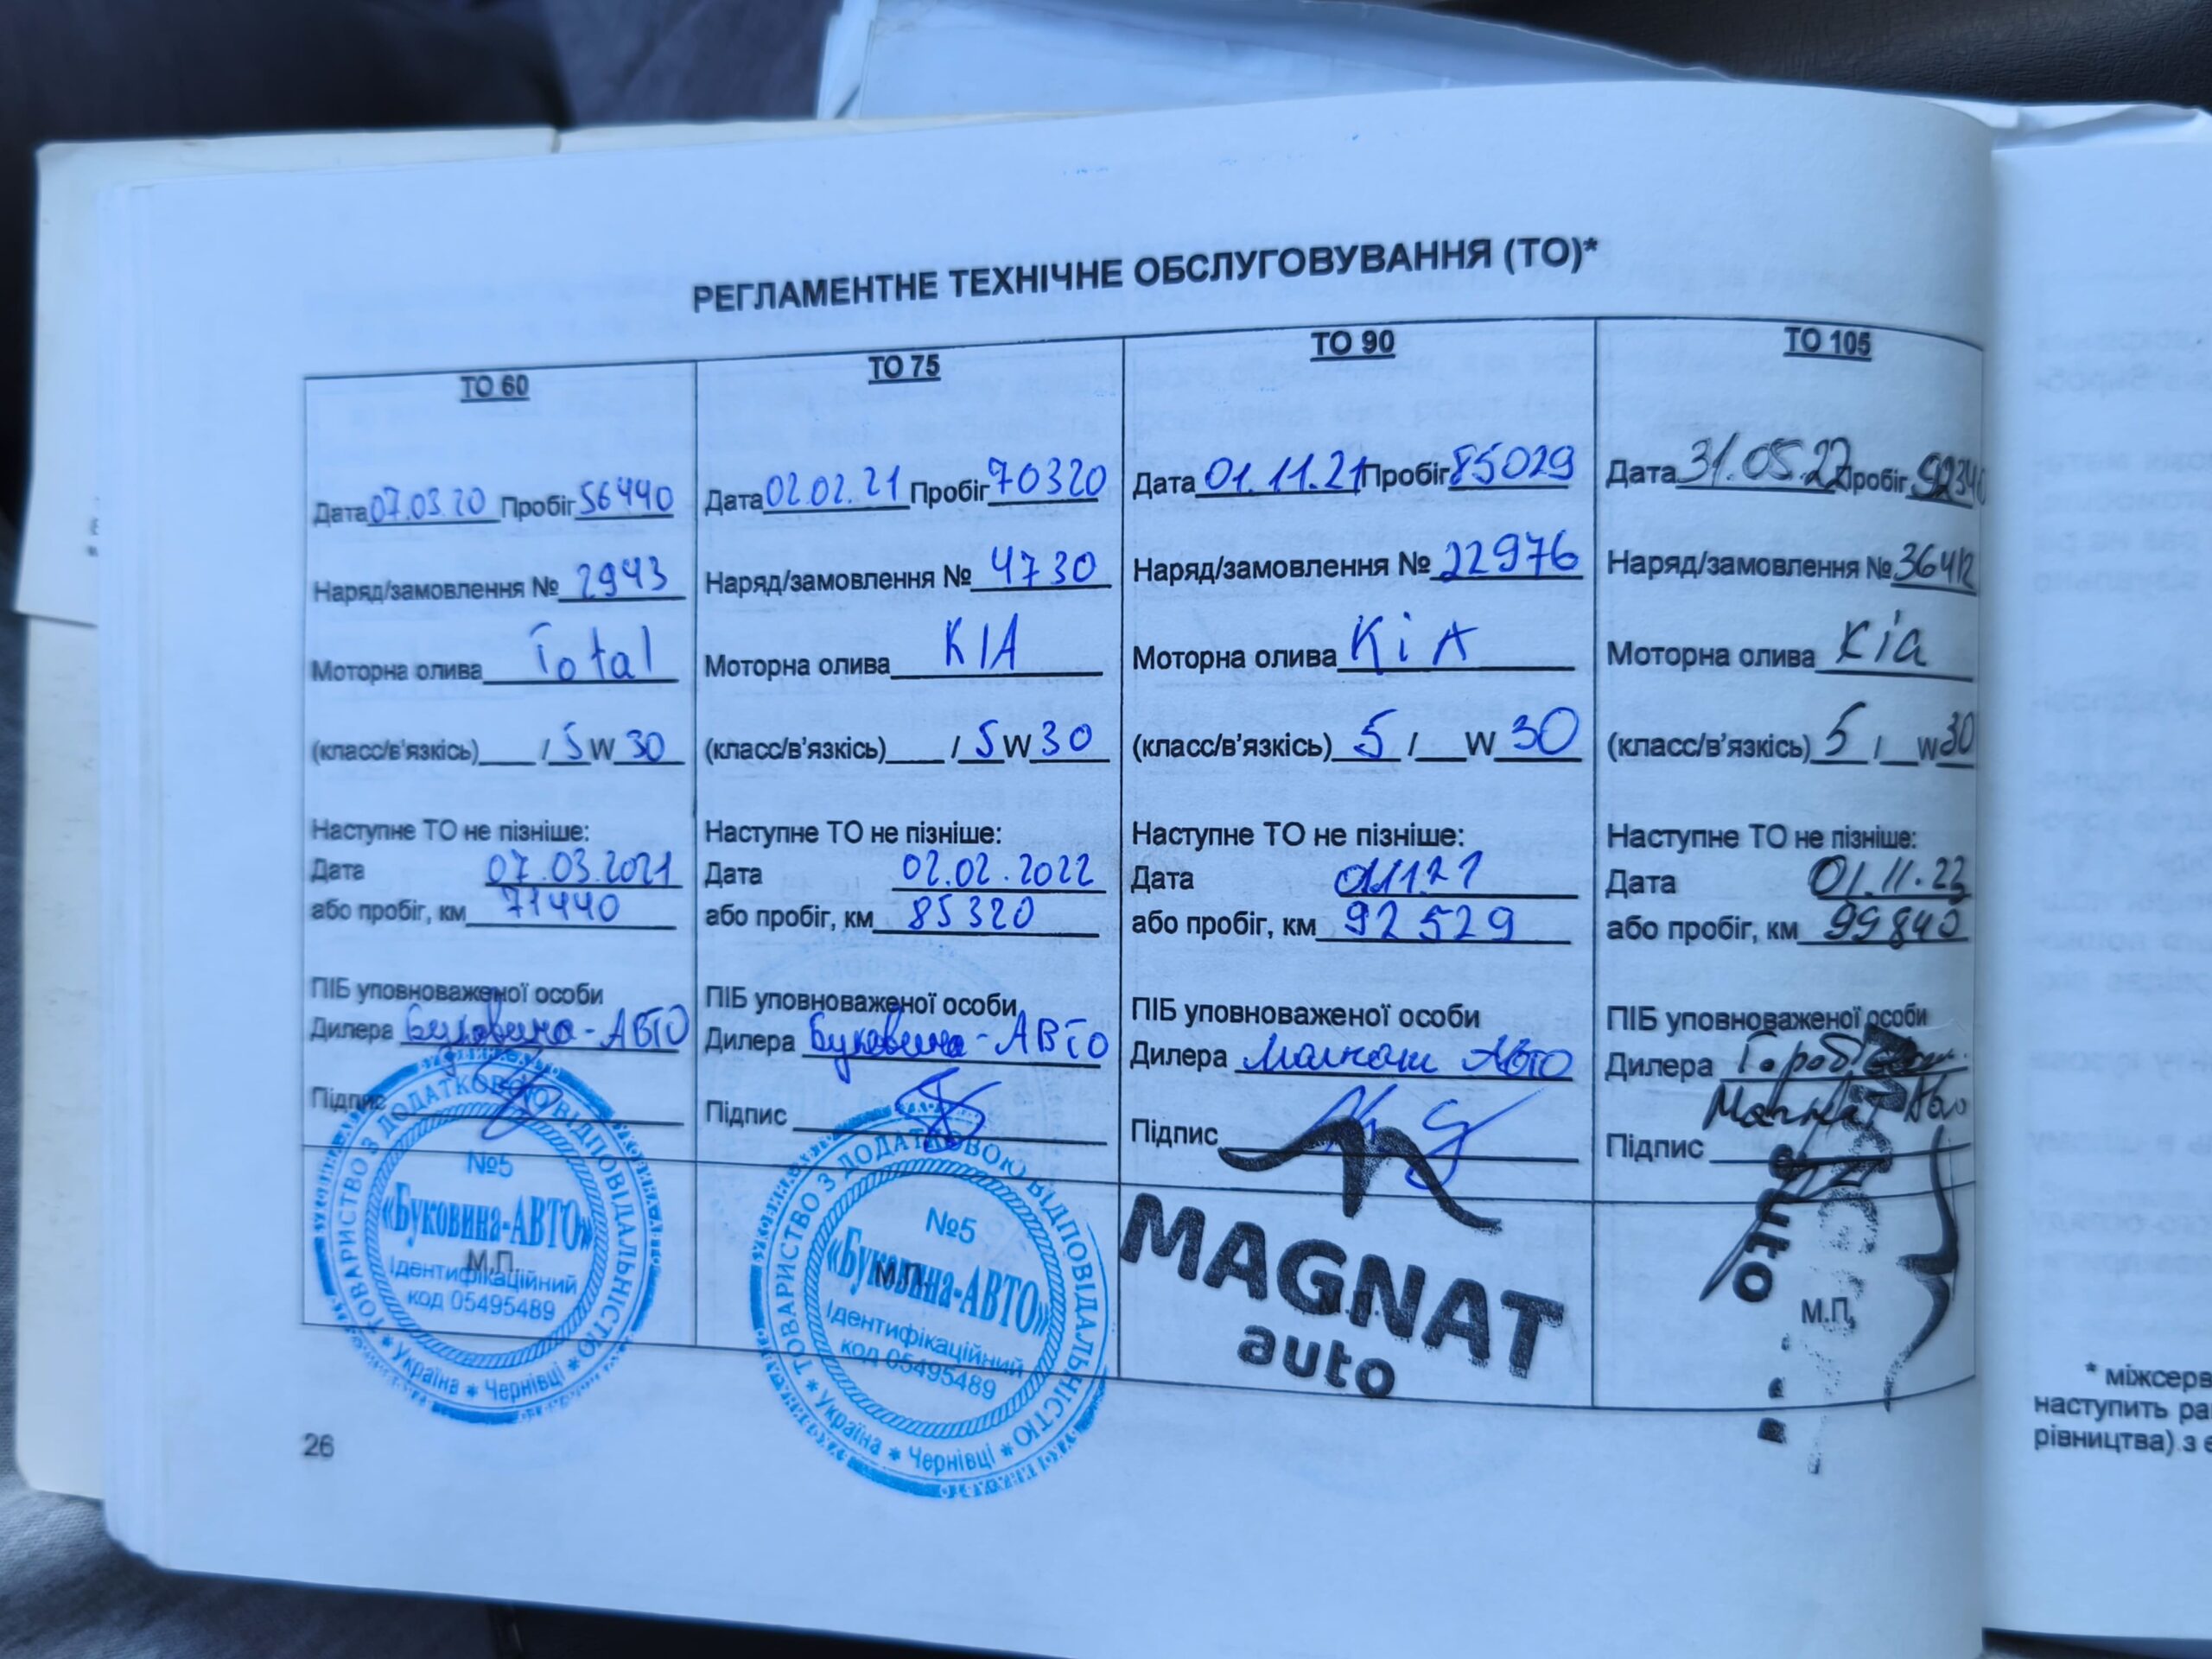 РЕГЛАМЕНТНЕ ТЕХНІЧНЕ ОБСЛУГОВУВАННЯ (ТО)*
ТО 60
Дата 07.03.20 Пробіг 56440
Наряд/замовлення № 2943
Моторна олива Total
(класс/в'язкісь)____ / 5 W 30
Наступне ТО не пізніше:
Дата 07.03.2021
або пробіг, км 71440
ПІБ уповноваженої особи
Дилера Буковина-АВТО
Підпис
ТОВАРИСТВО З ДОДАТКОВОЮ ВІДПОВІДАЛЬНІСТЮ
№5
«Буковина-АВТО»
М.П.
Ідентифікаційний
код 05495489
* Україна * Чернівці *
ТО 75
Дата 02.02.21 Пробіг 70320
Наряд/замовлення № 4730
Моторна олива KIA
(класс/в'язкісь)____ / 5 W 30
Наступне ТО не пізніше:
Дата 02.02.2022
або пробіг, км 85320
ПІБ уповноваженої особи
Дилера Буковина-АВТО
Підпис
ТОВАРИСТВО З ДОДАТКОВОЮ ВІДПОВІДАЛЬНІСТЮ
№5
«Буковина-АВТО»
М.П.
Ідентифікаційний
код 05495489
* Україна * Чернівці *
ТО 90
Дата 01.11.21 Пробіг 85029
Наряд/замовлення № 22976
Моторна олива KiA
(класс/в'язкісь) 5 /___W 30
Наступне ТО не пізніше:
Дата
або пробіг, км 92529
ПІБ уповноваженої особи
Дилера Авто
Підпис
MAGNAT
auto
ТО 105
Дата 31.05.22 Пробіг 92340
Наряд/замовлення № 36412
Моторна олива Kia
(класс/в'язкісь) 5 /__W 30
Наступне ТО не пізніше:
Дата 01.11.22
або пробіг, км 99840
ПІБ уповноваженої особи
Дилера
Магнат Авто
Підпис
auto
М.П.
26
* міжсерв
наступить ра
рівництва) з